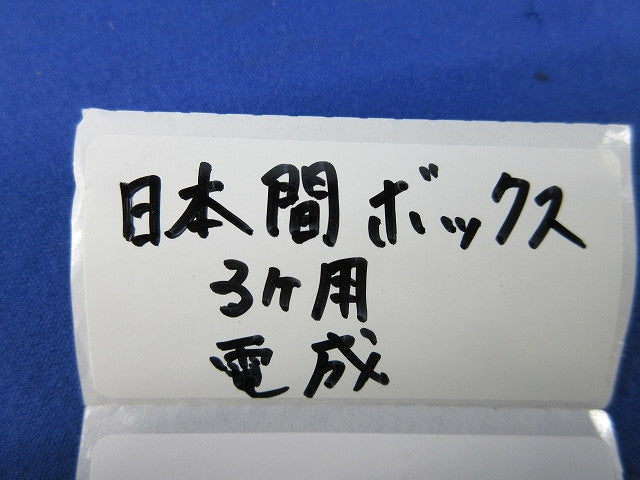 日本間ボックス
3ケ用
電成